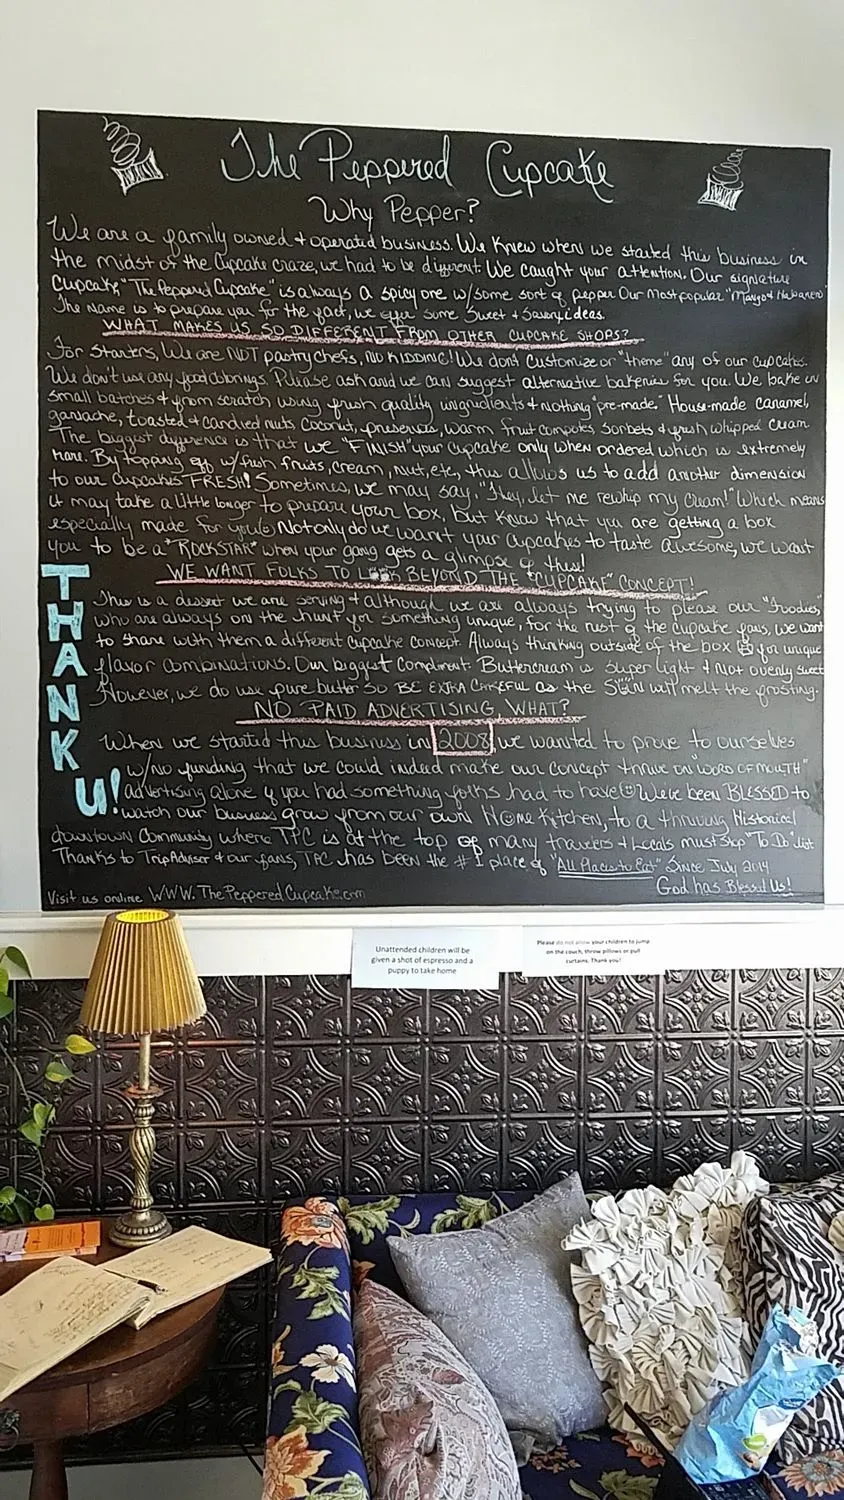 The Peppered Cupcake
Why Pepper?
We are a family owned + operated business. We knew when we started this business in
the midst of the Cupcake craze, we had to be different. We caught your attention. Our signature
Cupcake, "The Peppered Cupcake" is always a spicy one w/some sort of pepper. Our most popular "Mango + Habanero"
The name is to prepare you for the fact, we offer some Sweet + Savory ideas.
WHAT MAKES US SO DIFFERENT FROM OTHER CUPCAKE SHOPS?
For Starters, We are NOT pastry chefs, NO KIDDING! We dont customize or "theme" any of our cupcakes.
We don't use any food colorings. Please ask and we can suggest alternative bakeries for you. We bake in
small batches + from scratch using fresh quality ingredients + nothing "pre-made." House-made caramel,
ganache, toasted + candied nuts, coconut, preserves, warm fruit compotes, sorbets + fresh whipped cream
The biggest difference is that we "FINISH" your cupcake only when ordered which is extremely
rare. By topping off w/fresh fruits, cream, nut, etc, this allows us to add another dimension
to our cupcakes FRESH! Sometimes, we may say, "Hey, let me rewhip my cream!" Which means
it may take a little longer to prepare your box, but know that you are getting a box
especially made for you☺ Not only do we want your cupcakes to taste awesome, we want
you to be a "ROCKSTAR" when your gang gets a glimpse of this!
WE WANT FOLKS TO LOOK BEYOND THE "CUPCAKE" CONCEPT!
This is a dessert we are serving + although we are always trying to please our "Foodies,"
who are always on the hunt for something unique, for the rest of the cupcake fans, we want
to share with them a different cupcake concept. Always thinking outside of the box for unique
flavor combinations. Our biggest Compliment: Buttercream is super light + not overly sweet
However, we do use pure butter so BE EXTRA CAREFUL as the SUN will melt the frosting.
NO PAID ADVERTISING, WHAT?
When we started this business in 2008, we wanted to prove to ourselves
w/no funding that we could indeed make our concept thrive on "WORD OF MOUTH"
advertising alone if you had something folks had to have☺ We've been BLESSED to
watch our business grow from our own Home Kitchen, to a thriving Historical
downtown Community where TPC is at the top of many travelers + Locals must stop "To Do" list
Thanks to TripAdvisor + our fans, TPC has been the #1 place of "All Places to Eat" Since July 2014
God has Blessed Us!
Visit us online WWW.ThePepperedCupcake.com
THANK U!
Unattended children will be
given a shot of espresso and a
puppy to take home
Please do not allow your children to jump
on the couch, throw pillows or pull
curtains. Thank you!